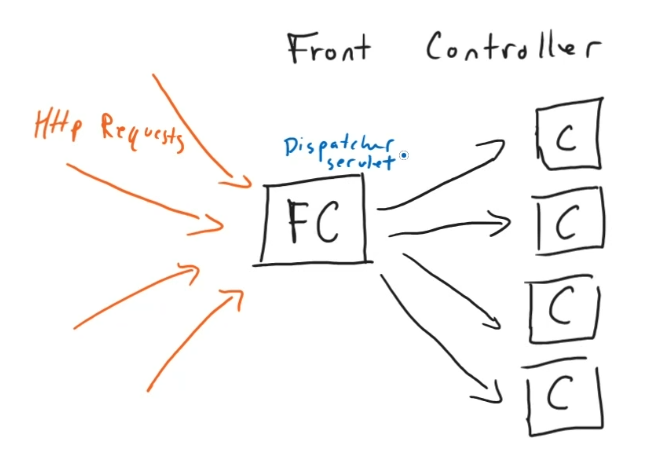 Front Controller
HTTp Requests
Dispatcher
servlet
FC
C
C
C
C